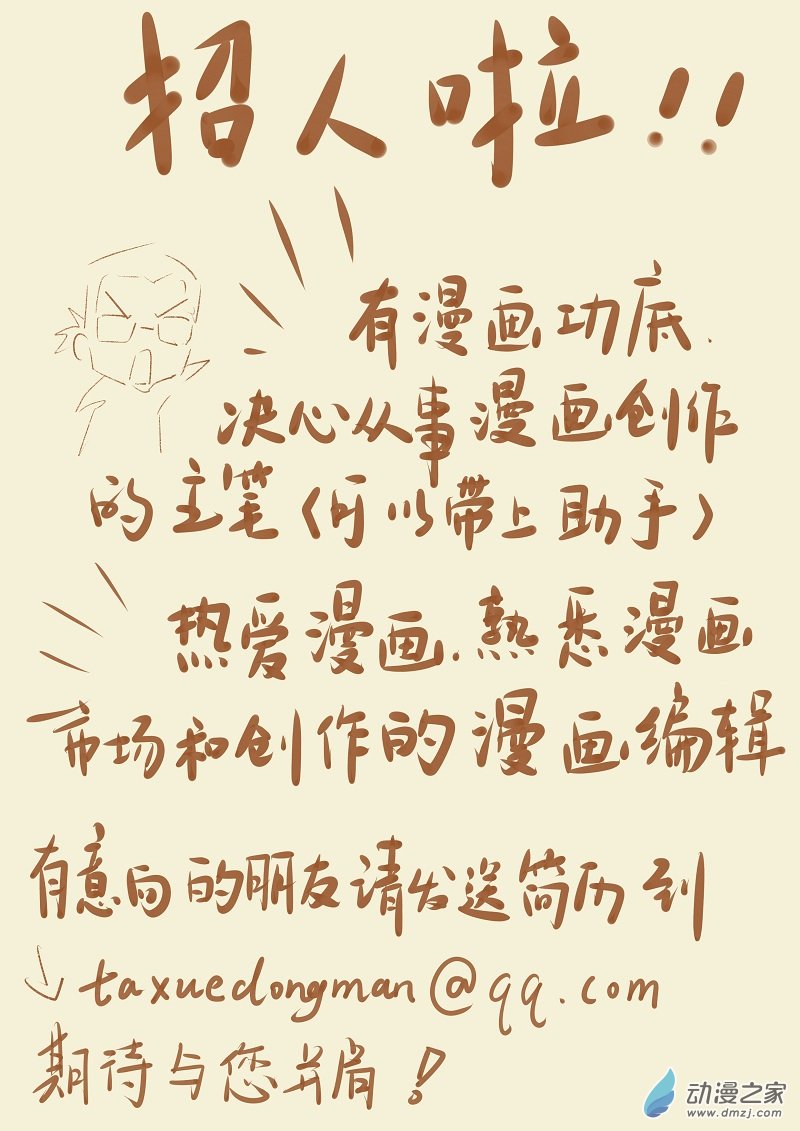 招人啦!!
有漫画功底、
决心从事漫画创作
的主笔(可以带上助手)
热爱漫画、熟悉漫画
市场和创作的漫画编辑
有意向的朋友请发送简历到
↓taxuedongman@qq.com
期待与您并肩!
动漫之家
www.dmzj.com